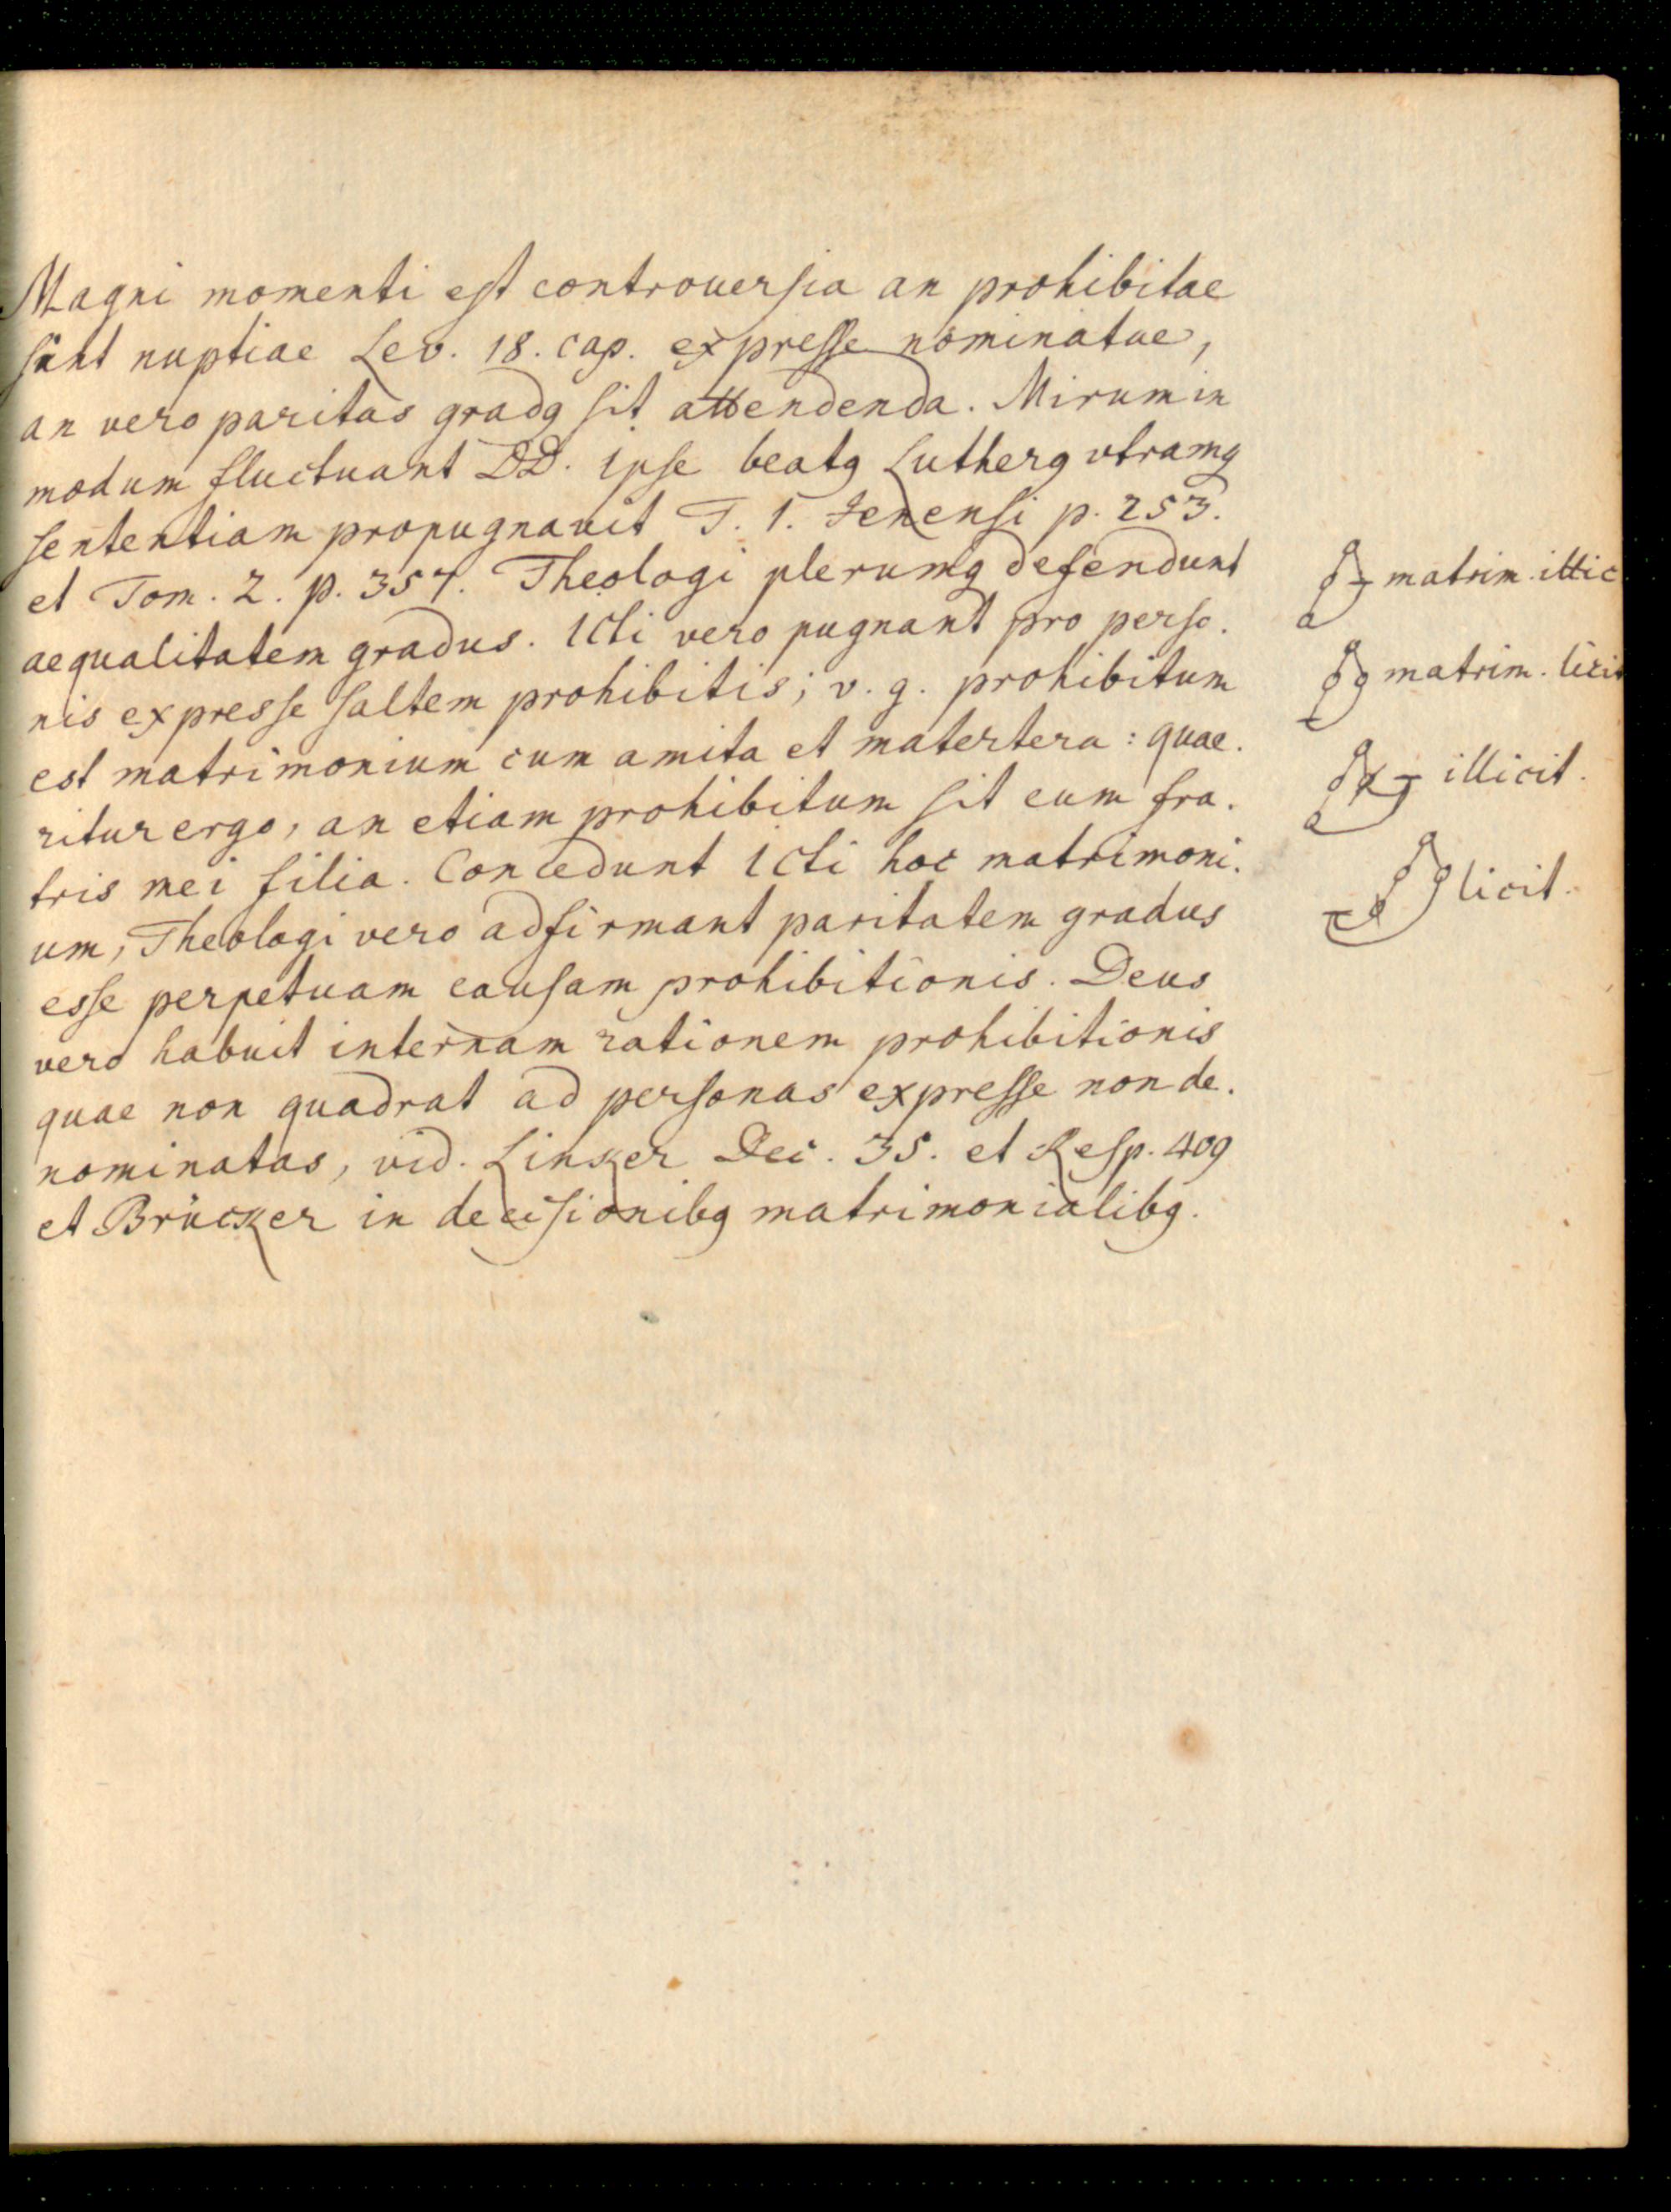 Magni momenti est controuersia an prohibitae
sint nuptiae Lev. 18. cap. expresse nominatae,
an vero paritas gradq sit attendenda. Mirum in
modum fluctuant DD. ipse beatq Lutherq vtramq
sententiam propugnauit T. 1. Jenensi p. 253.
et Tom. 2. p. 357. Theologi plerumq defendunt
aequalitatem gradus. ICti vero pugnant pro perso.
nis expresse saltem prohibitis; v. g. prohibitum
est matrimonium cum amita et matertera: quae.
ritur ergo, an etiam prohibitum sit cum fra.
tris mei filia. Concedunt ICti hoc matrimoni.
um, Theologi vero adfirmant paritatem gradus
esse perpetuam causam prohibitionis. Deus
vero habuit internam rationem prohibitionis
quae non quadrat ad personas expresse non de.
nominatas, vid. Linker Dec. 35. et Resp. 409
et Brücker in decisionibq matrimonialibq.
matrim. illic
matrim. licit
illicit.
licit.